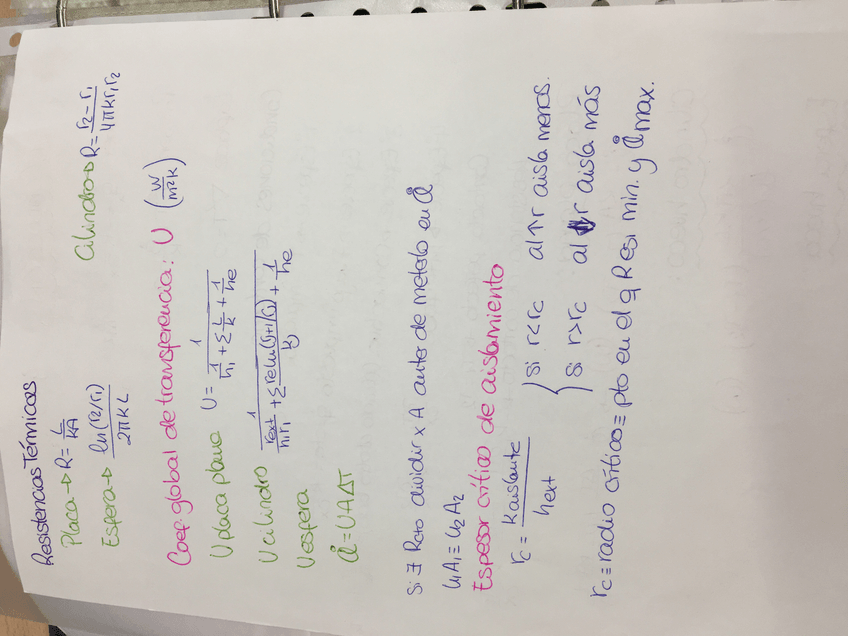 Resistencias Térmicas
Placa → R = L / KA
Cilindro → R = r2 - r1 / 4πKr1r2
Esfera → ln(r2/r1) / 2πKL
Coef global de transferencia: U (W / m²K)
U placa plana U = 1 / (1/h1 + Σ L/K + 1/he)
U cilindro 1 / (rext/hiri + Σ re ln(rj+1/rj) / kj + 1/he)
U esfera
Q̇ = UAΔT
Si ∃ Rcto dividir x A antes de meterlo en Q̇
U1A1 = U2A2
Espesor crítico de aislamiento
rc = Kaislante / hext { si r<rc al ↑r aisla menos.
si r>rc al ↑r aisla más
rc ≡ radio crítico ≡ pto en el q Res min. y Q̇max.